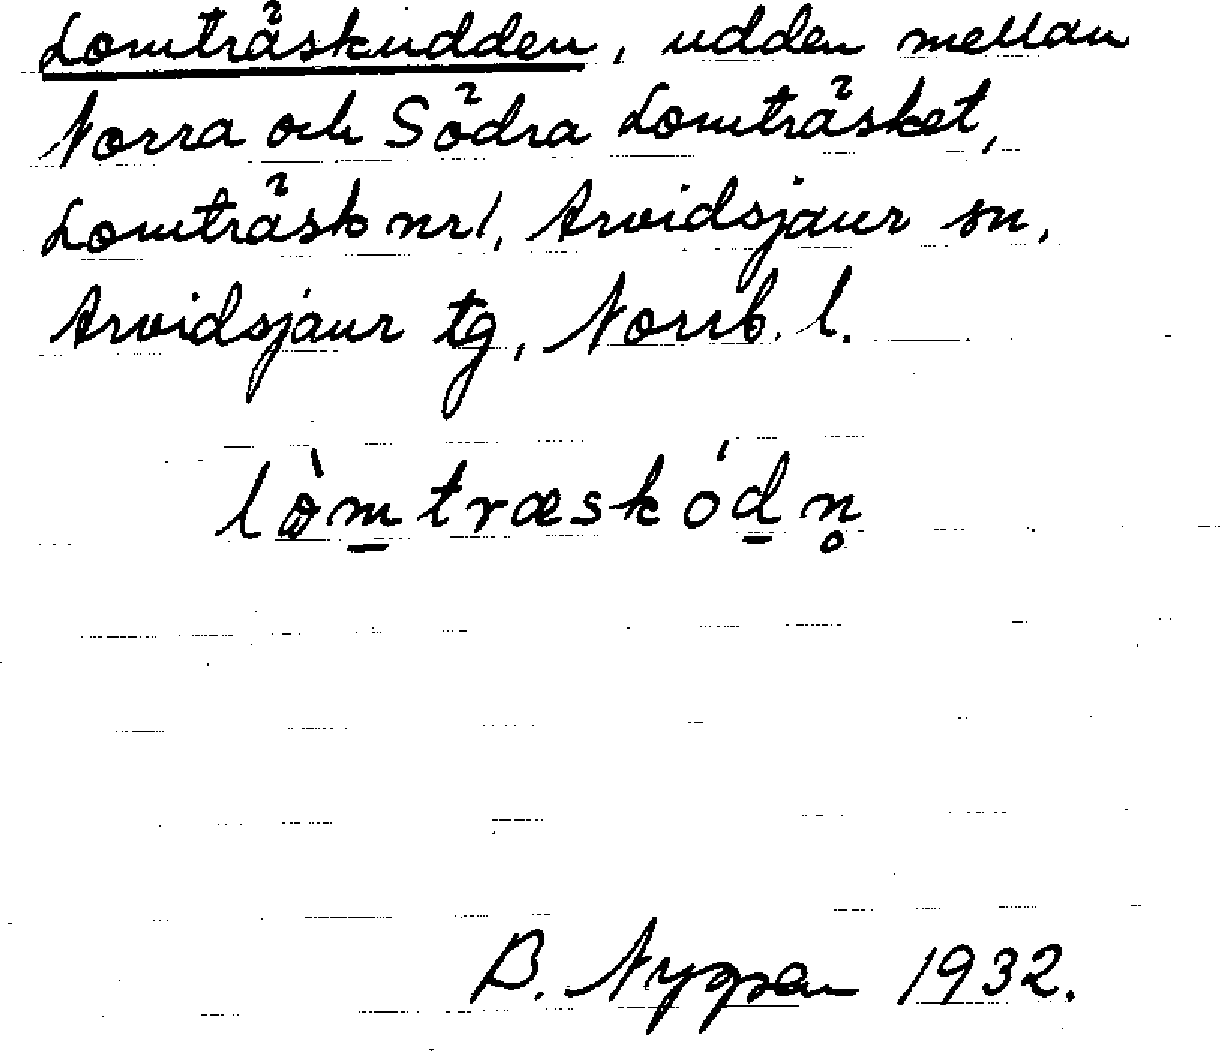 Lomträskudden, udden mellan
Norra och Södra Lomträsket,
Lomträsk nr 1, Arvidsjaur sn,
Arvidsjaur tg, Norrb. l.
lòmtræskódn̥
B. 1932.